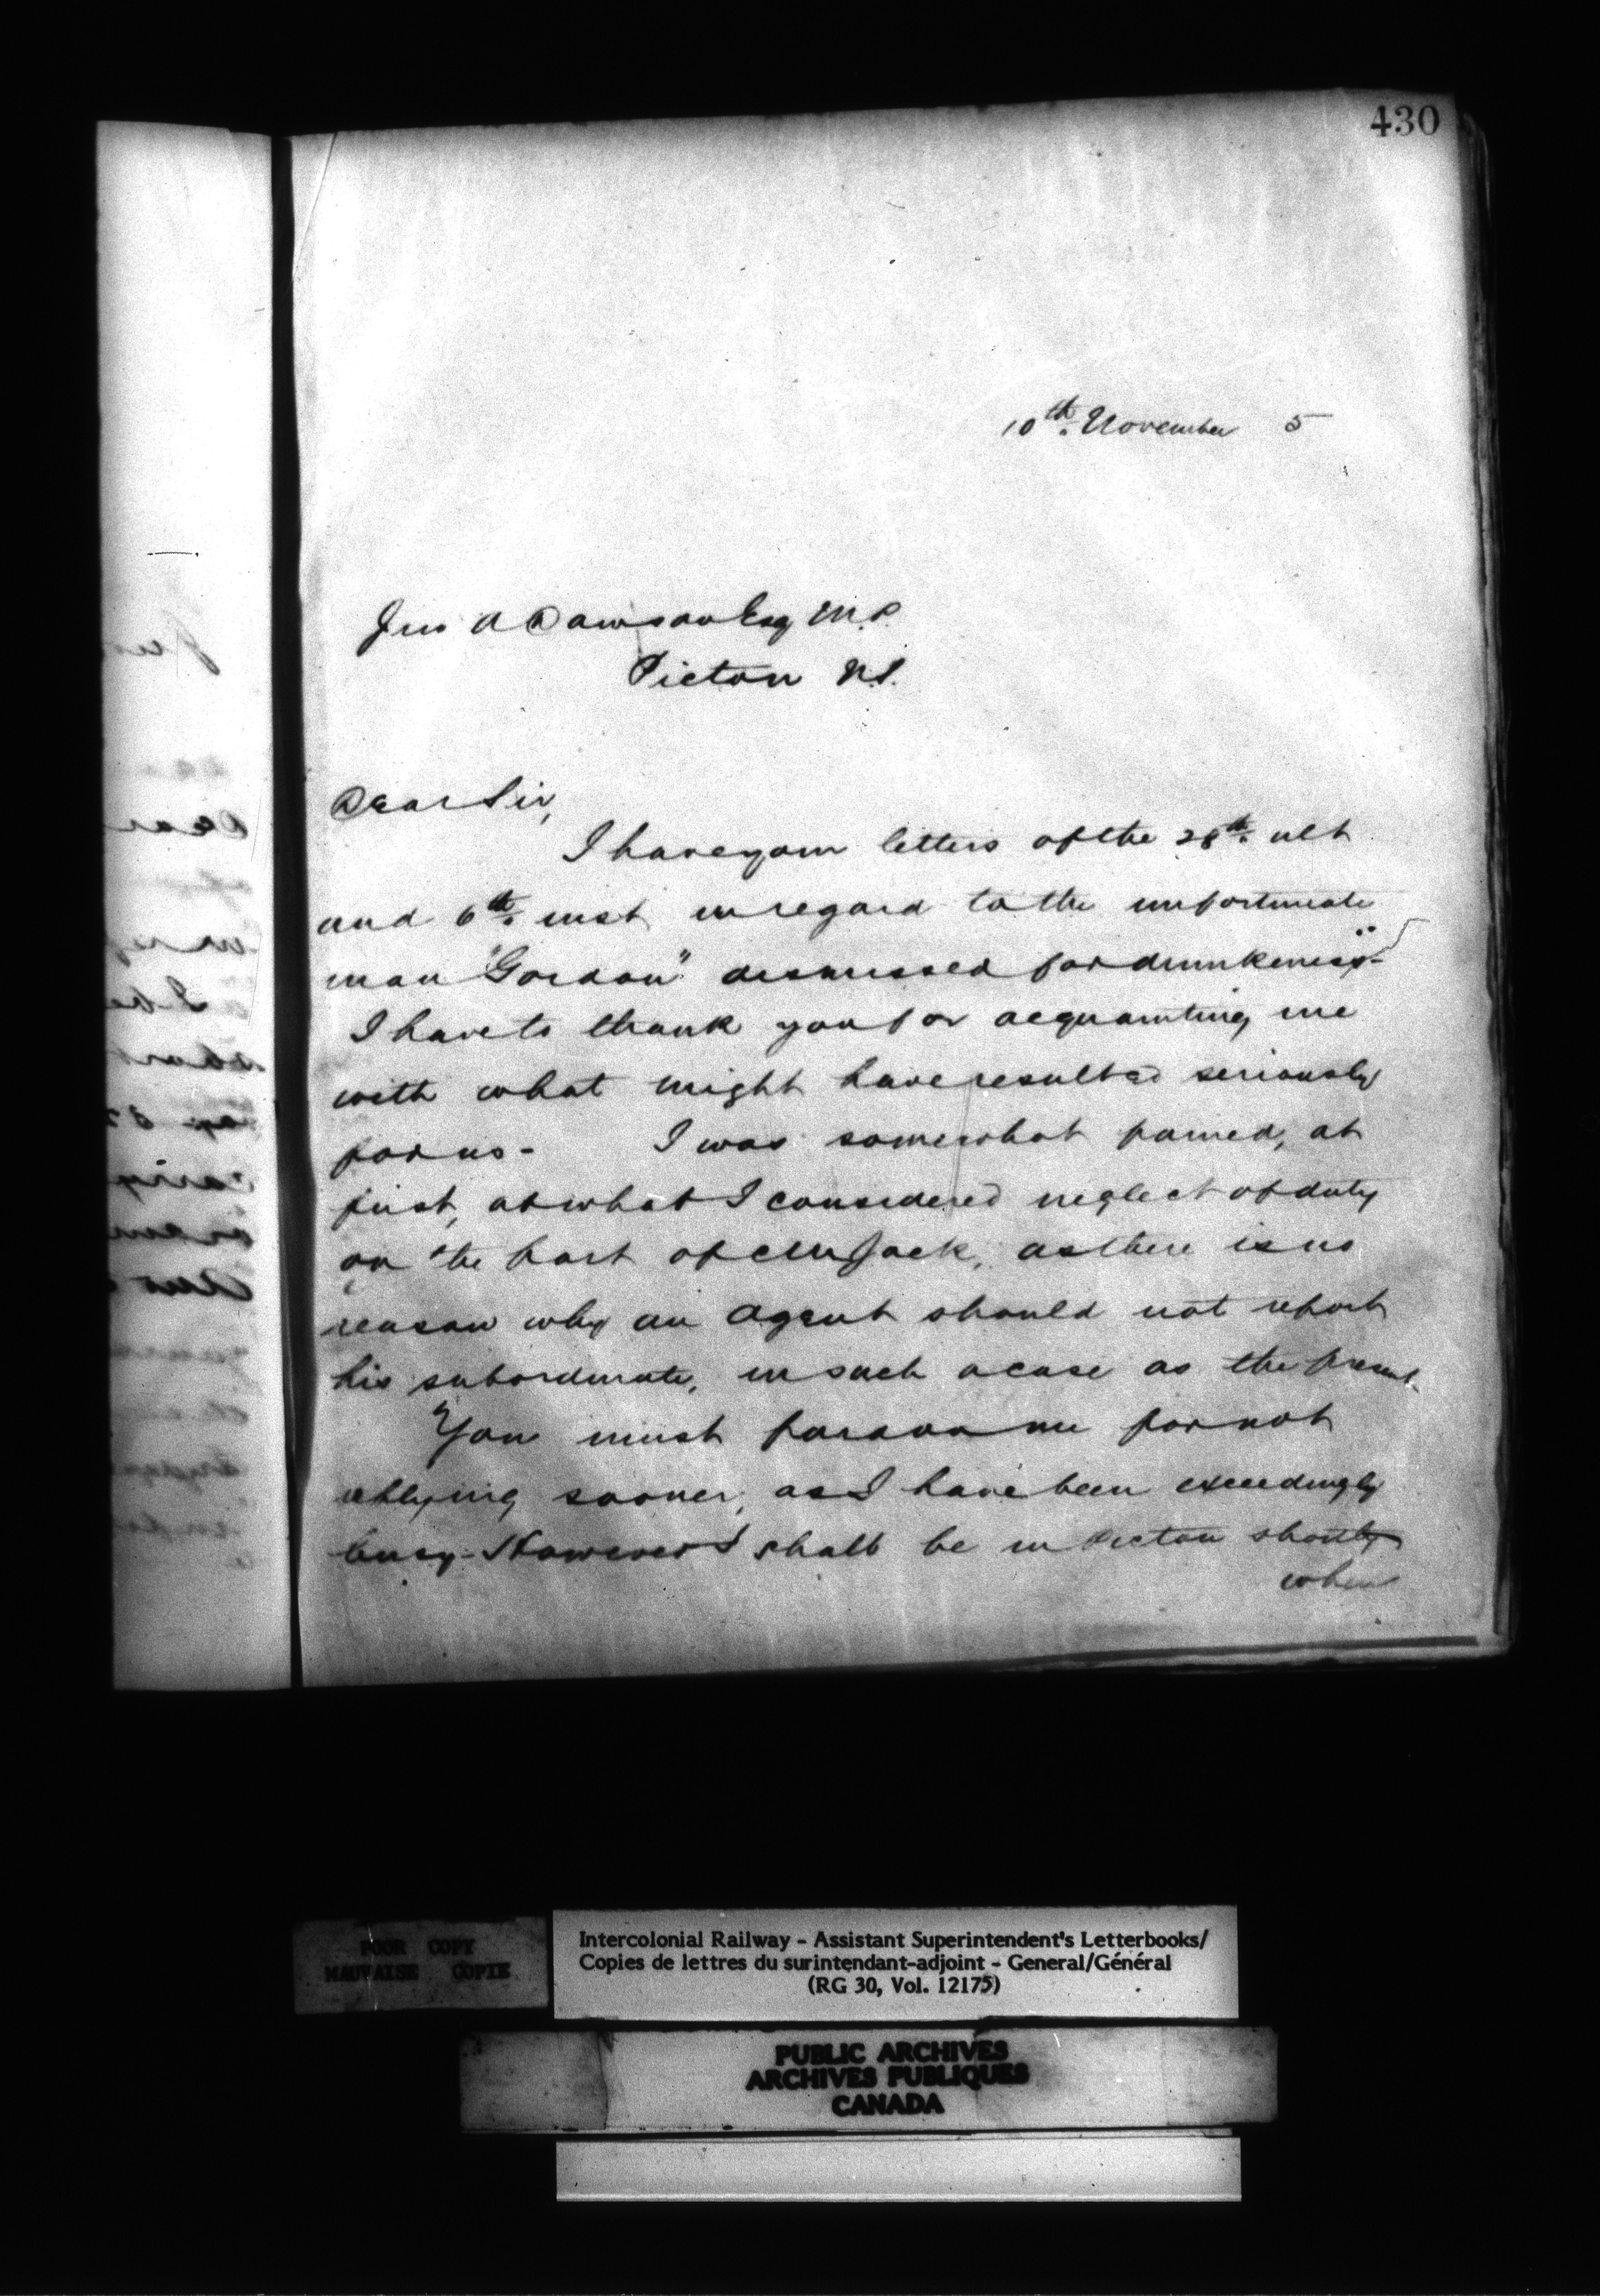 430
10th. November 5
Jno A Dawson Esq M.P.
Pictou N.S.
Dear Sir,
I have your letters of the 28th. ult
and 6th. inst in regard to the unfortunate
man "Gordon" dismissed for drunkeness-
I have to thank you for acquainting me
with what might have resulted seriously
for us - I was somewhat pained, at
first, at what I considered neglect of duty
on the part of Mr Jack, as there is no
reason why an Agent should not report
his subordinate, in such a case as the present.
You must pardon me for not
replying sooner, as I have been exceedingly
busy - However I shall be in Pictou shortly
when
POOR COPY
MAUVAISE COPIE
Intercolonial Railway - Assistant Superintendent's Letterbooks/
Copies de lettres du surintendant-adjoint - General/Général
(RG 30, Vol. 12175)
PUBLIC ARCHIVES
ARCHIVES PUBLIQUES
CANADA